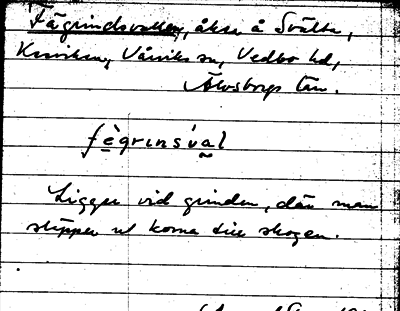 Fägrindsvallen, åker å Svälta,
Korviken, Vårviks sn, Vedbo hd,
Älvsborgs län.
fè̱grɪnsˈva̰l
Ligger vid grinden, där man
släpper ut korna till skogen.